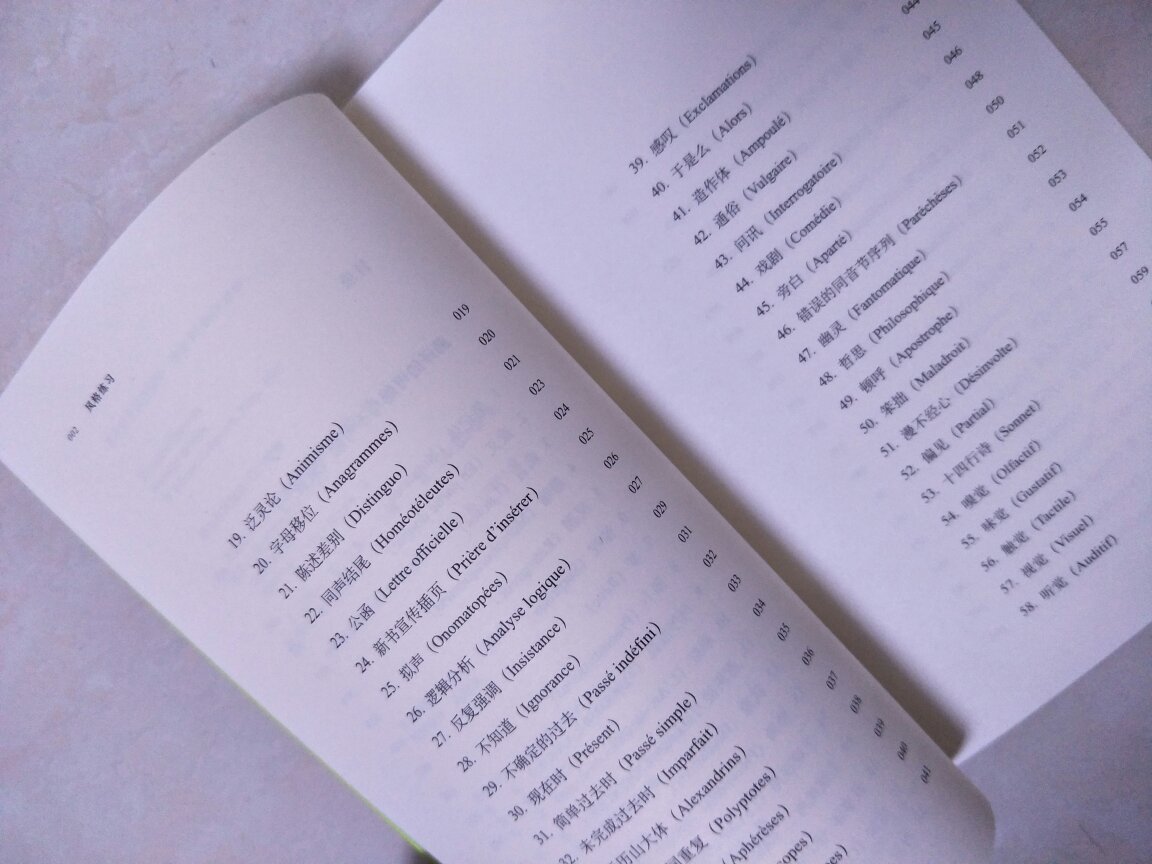 002 风格练习
19. 泛灵论（Animisme） 019
20. 字母移位（Anagrammes） 020
21. 陈述差别（Distinguo） 021
22. 同声结尾（Homéotéleutes） 023
23. 公函（Lettre officielle） 024
24. 新书宣传插页（Prière d'insérer） 025
25. 拟声（Onomatopées） 026
26. 逻辑分析（Analyse logique） 027
27. 反复强调（Insistance） 029
28. 不知道（Ignorance） 031
29. 不确定的过去（Passé indéfini） 032
30. 现在时（Présent） 033
31. 简单过去时（Passé simple） 034
32. 未完成过去时（Imparfait） 035
历山大体（Alexandrins） 036
重复（Polyptotes） 037
（Aphérèses） 038
039
040
041
39. 感叹（Exclamations）
40. 于是么（Alors）
41. 造作体（Ampoulé） 044
42. 通俗（Vulgaire） 045
43. 问讯（Interrogatoire） 046
44. 戏剧（Comédie） 048
45. 旁白（Aparté） 050
46. 错误的同音节序列（Paréchèses） 051
47. 幽灵（Fantomatique） 052
48. 哲思（Philosophique） 053
49. 顿呼（Apostrophe） 054
50. 笨拙（Maladroit） 055
51. 漫不经心（Désinvolte） 057
52. 偏见（Partial） 059
53. 十四行诗（Sonnet）
54. 嗅觉（Olfactif）
55. 味觉（Gustatif）
56. 触觉（Tactile）
57. 视觉（Visuel）
58. 听觉（Auditif）